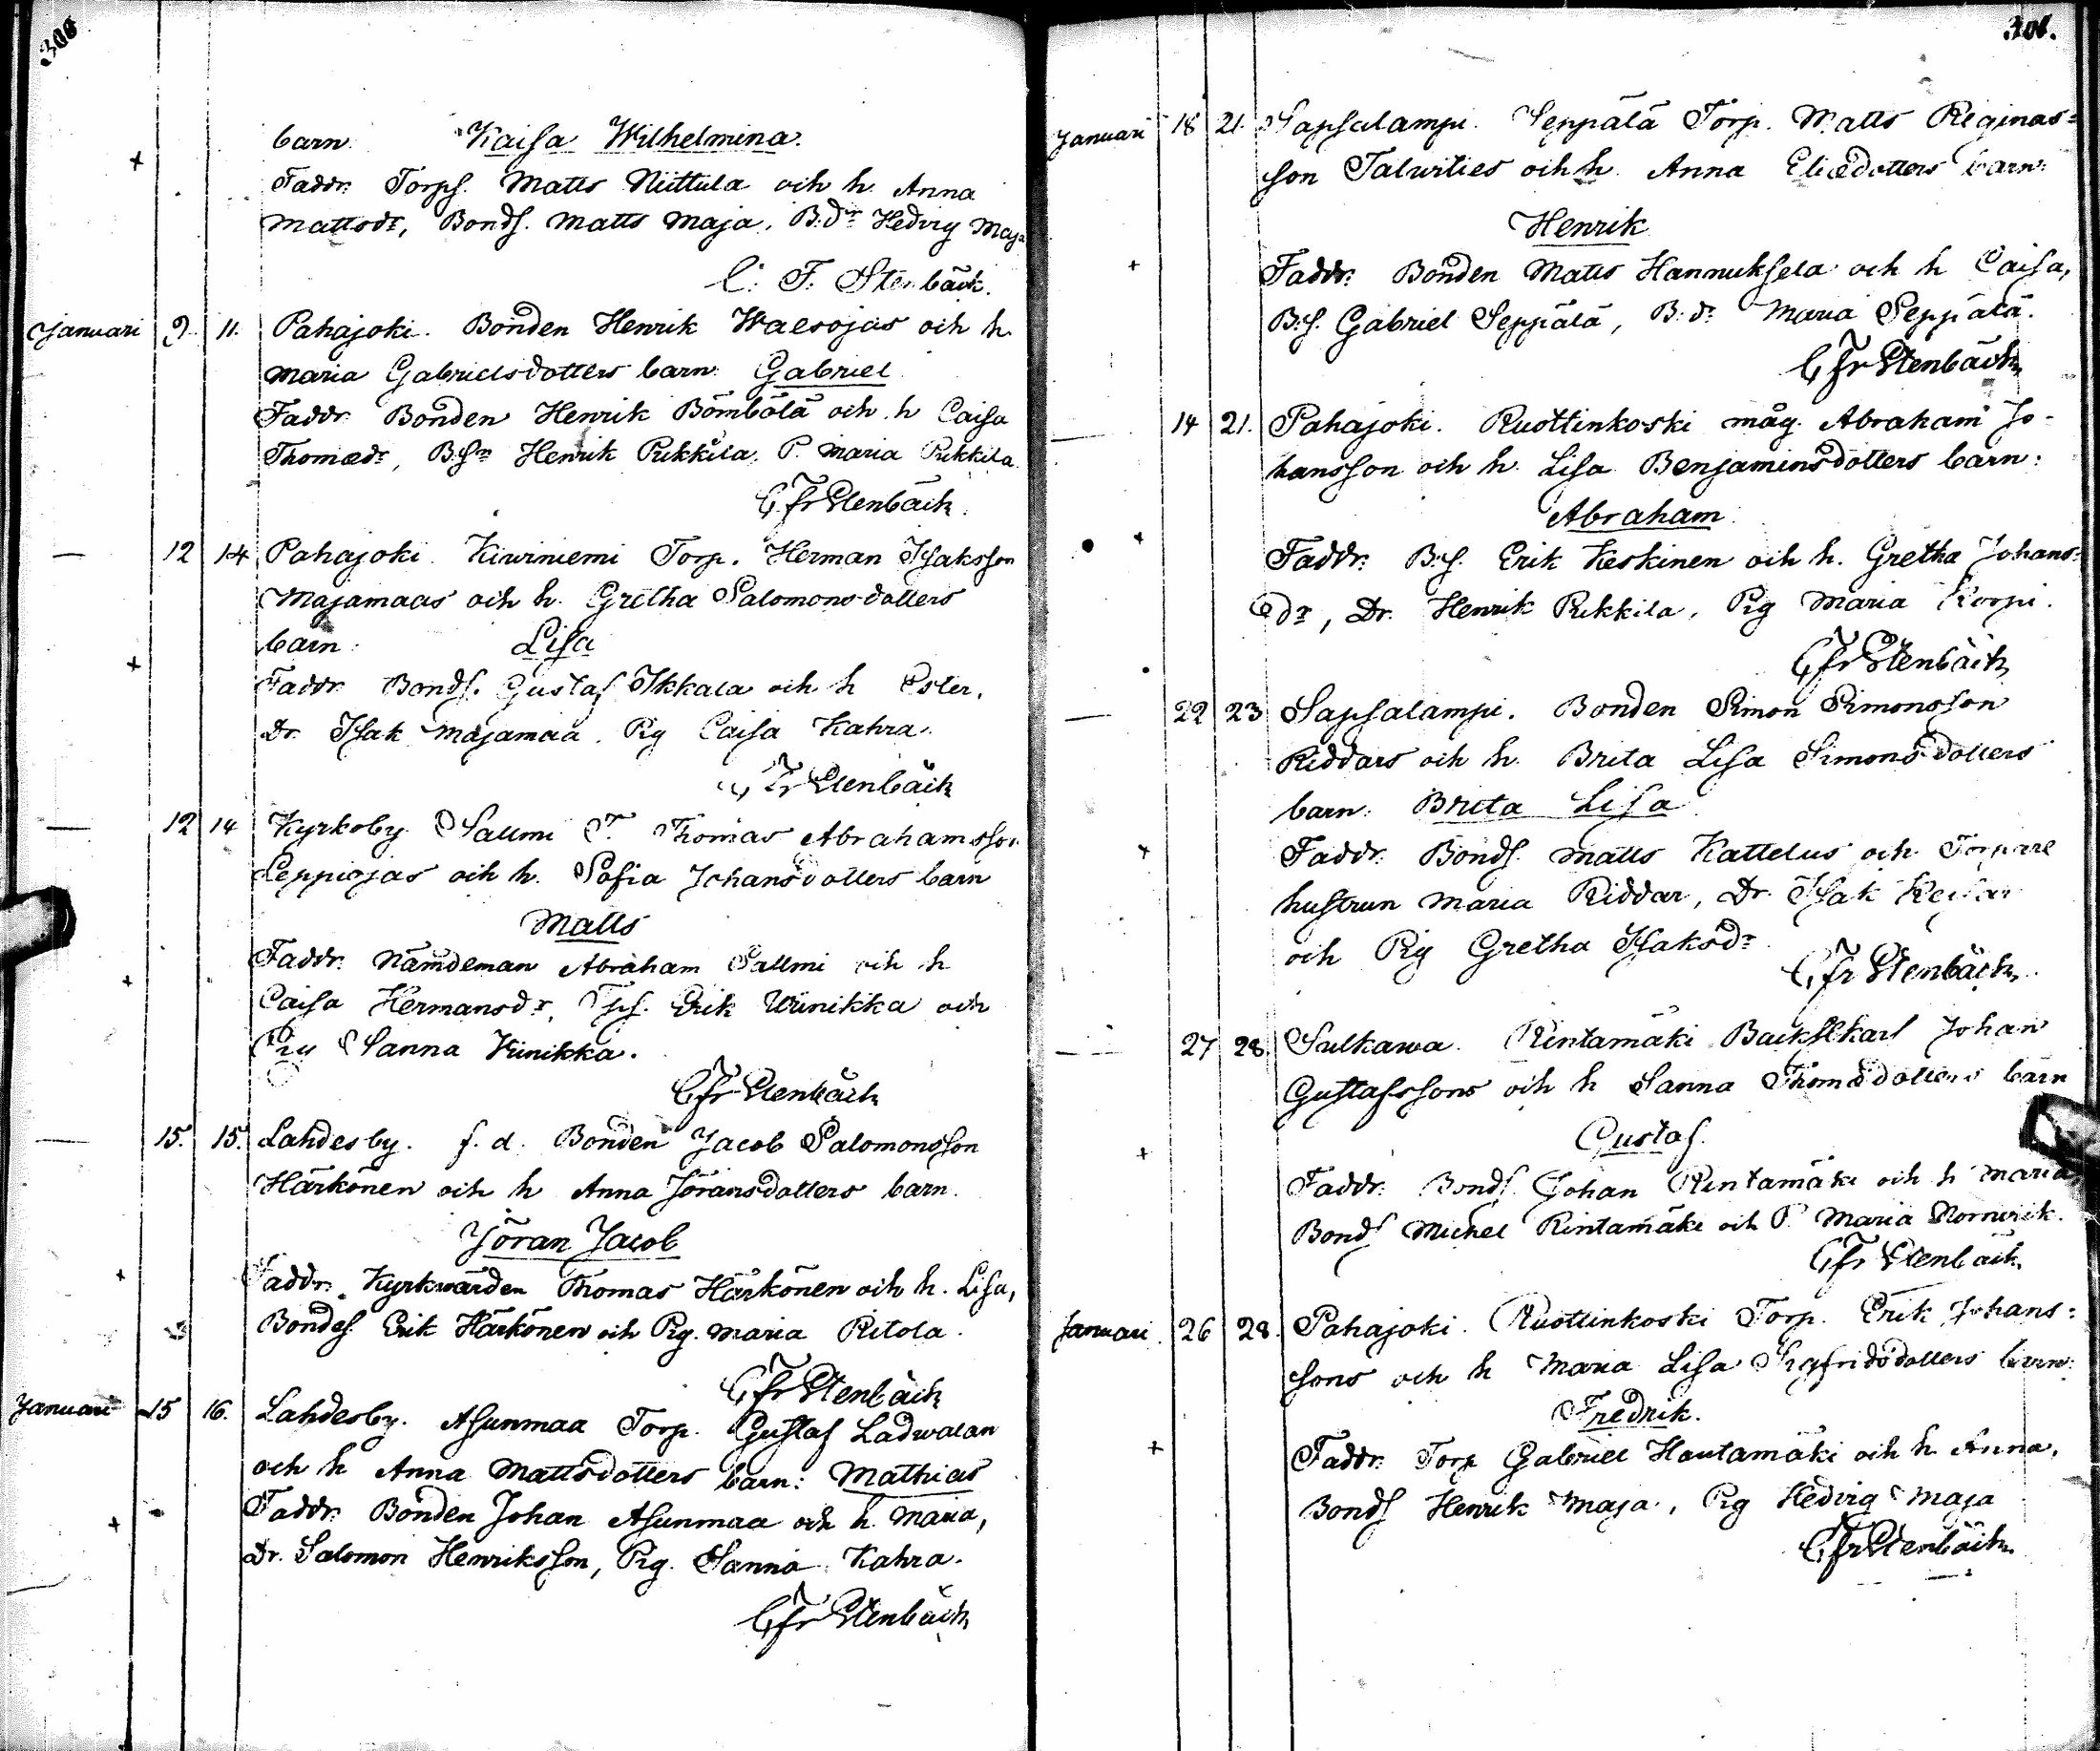 300
barn. Kaisa Wilhelmina.
Faddr. Torps. Matts Niittula och h. Anna
Mattsdr, Bonds. Matts Maja, B.dr Hedvig Maja
C. F. Stenbäck.
Januari 9. 11. Pahajoki. Bonden Henrik Waesojas och h.
Maria Gabrielsdotters barn: Gabriel
Faddr. Bonden Henrik Bömbölä och h. Caisa
Thomædr, B.Sn Henrik Pukkila, P. Maria Pukkila
C Fr Stenbäck.
12 14 Pahajoki. Kiwiniemi Torp. Herman Isaksson
Majamaas och h. Gretha Salomonsdotters
barn: Lisa
Faddr. Bonds. Gustaf Ikkala och h Ester,
Dr. Isak Majamaa. Pig Caisa Kahra.
C Fr Stenbäck
12 14 Kyrkoby Sallmi T. Thomas Abrahamsson
Leppiojas och h. Sofia Johansdotters barn
Matts
Faddr. Nämdeman Abraham Sallmi och h
Caisa Hermansdr, Tps. Erik Wiinikka och
Pig Sanna Kiinikka.
C Fr Stenbäck
15. 15. Lahdesby. f. d. Bonden Jacob Salomonsson
Härkönen och h Anna Jöransdotters barn.
Jöran Jacob
Faddr. Kyrkvärden Thomas Härkönen och h. Lisa,
Bondes. Erik Härkönen och Pig. Maria Ritola.
C Fr Stenbäck
Januari 15 16. Lahdesby. Asunmaa Torp. Gustaf Ladwalan
och h Anna Mattsdotters barn: Mathias
Faddr. Bonden Johan Asunmaa och h. Maria,
Dr. Salomon Henriksson, Pig. Sanna Kahra.
C Fr Stenbäck
301.
Januari 18 21. Sapsalampi. Seppälä Torp. Matts Reginas=
son Talwities och h. Anna Eliædotters barn:
Henrik
Faddr. Bonden Matts Hannuksela och h Caisa,
B.S. Gabriel Seppälä, B.dr Maria Seppälä.
C Fr Stenbäck
14 21. Pahajoki. Ruottinkoski måg. Abraham Jo-
hansson och h. Lisa Benjaminsdotters barn:
Abraham
Faddr. B.S. Erik Keskinen och h. Gretha Johans-
dr, Dr. Henrik Pukkila, Pig Maria Korpi.
C Fr Stenbäck
22 23 Sapsalampi. Bonden Simon Simonsson
Riddars och h. Brita Lisa Simonsdotters
barn: Brita Lisa
Faddr. Bonds. Matts Kattelus och Torpare
hustrun Maria Riddar, Dr. Isak
och Pig Gretha Isaksdr
C Fr Stenbäck.
27 28. Sulkawa. Rintamäki Backstkarl Johan
Gustafssons och h Sanna Thomsdotters barn
Gustaf.
Faddr. Bonds. Johan Rintamäki och h Maria,
Bonds Michel Rintamäki och P. Maria Norrwik.
C Fr Stenbäck.
Januari. 26 28. Pahajoki. Ruottinkoski Torp. Erik Johans=
sons och h Maria Lisa Sigfridsdotters barn:
Fredrik.
Faddr. Torp Gabriel Hautamäki och h Anna,
Bonds Henrik Maja, Pig Hedvig Maja
C Fr Stenbäck